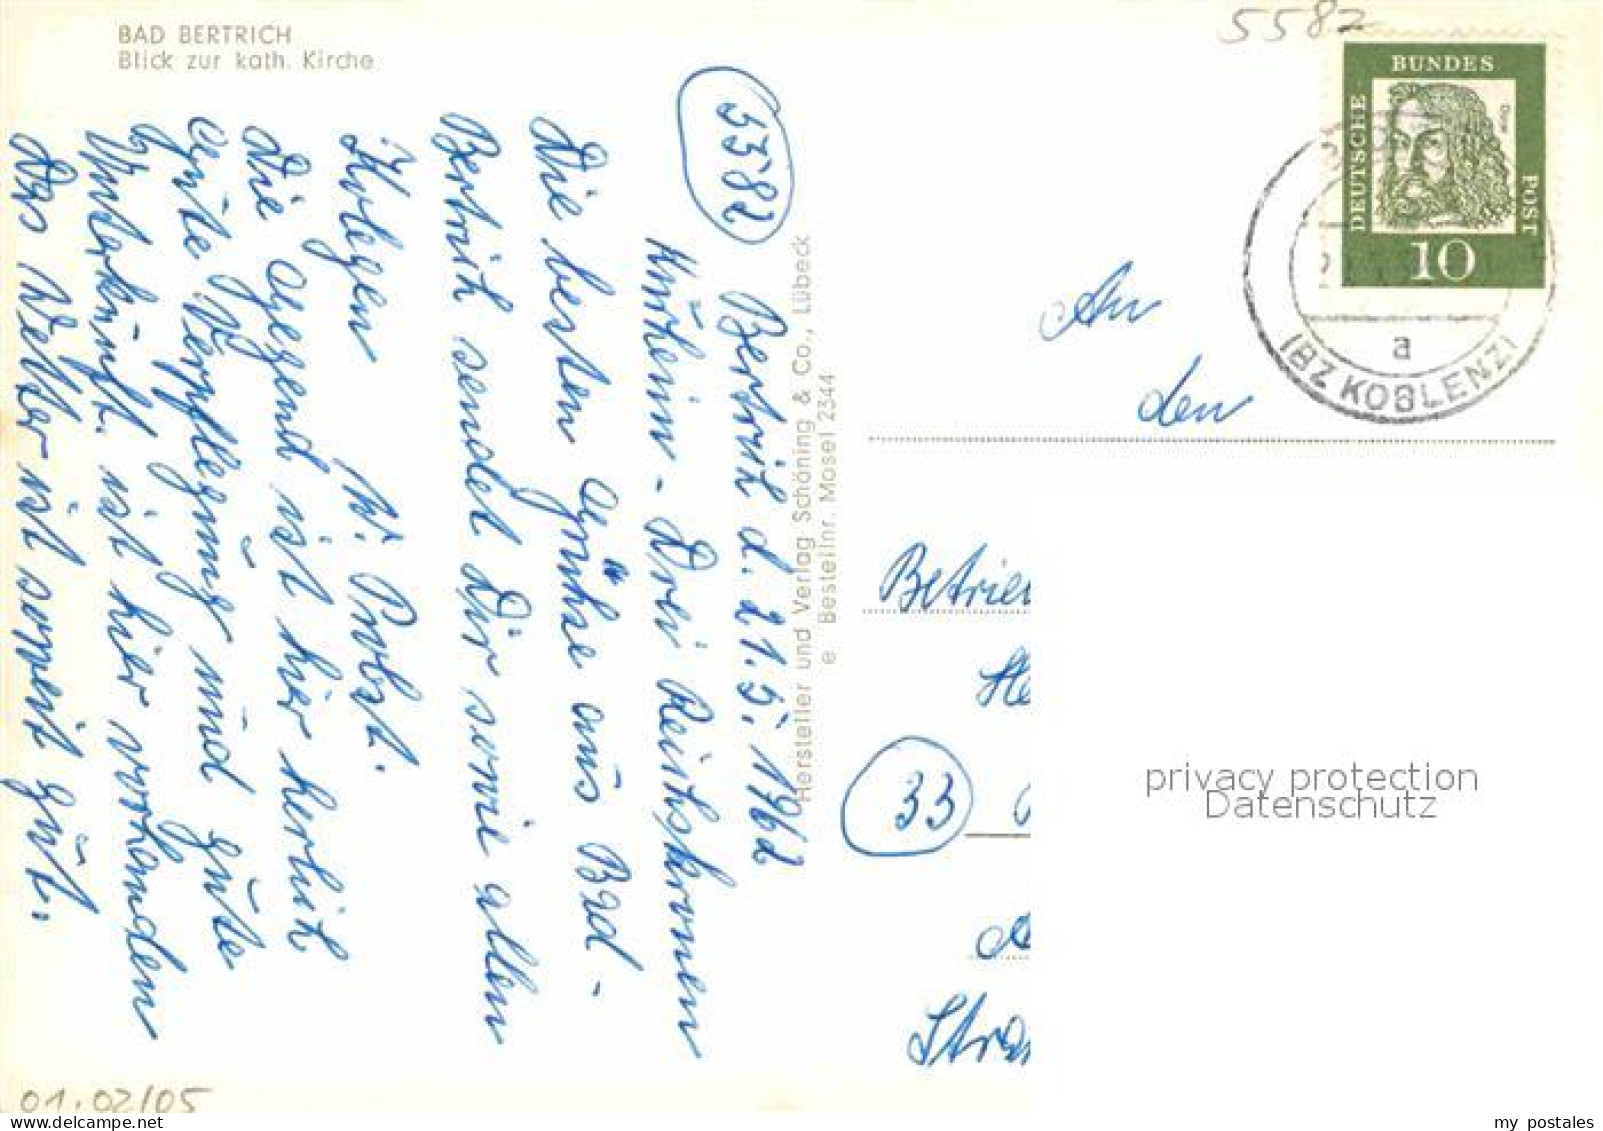 BAD BERTRICH
Blick zur kath. Kirche
5582
5582
Bertrich d. 21.5.1962
Kurheim - Drei Reichskronen
Die besten Grüße aus Bad -
Bertrich sendet Dir sowie allen
Kolegen W. Probst.
Die Gegend ist hier herlich
Gute Verpflegung und gute
Unterkunft ist hier vorhanden
Das Wetter ist soweit gut.
01.02/05
Hersteller und Verlag Schöning & Co., Lübeck
e Bestellnr. Mosel 2344
DEUTSCHE
BUNDES
POST
10
a
(BZ KOBLENZ)
An
den
Betrie
33
Stra
privacy protection
Datenschutz
my postales